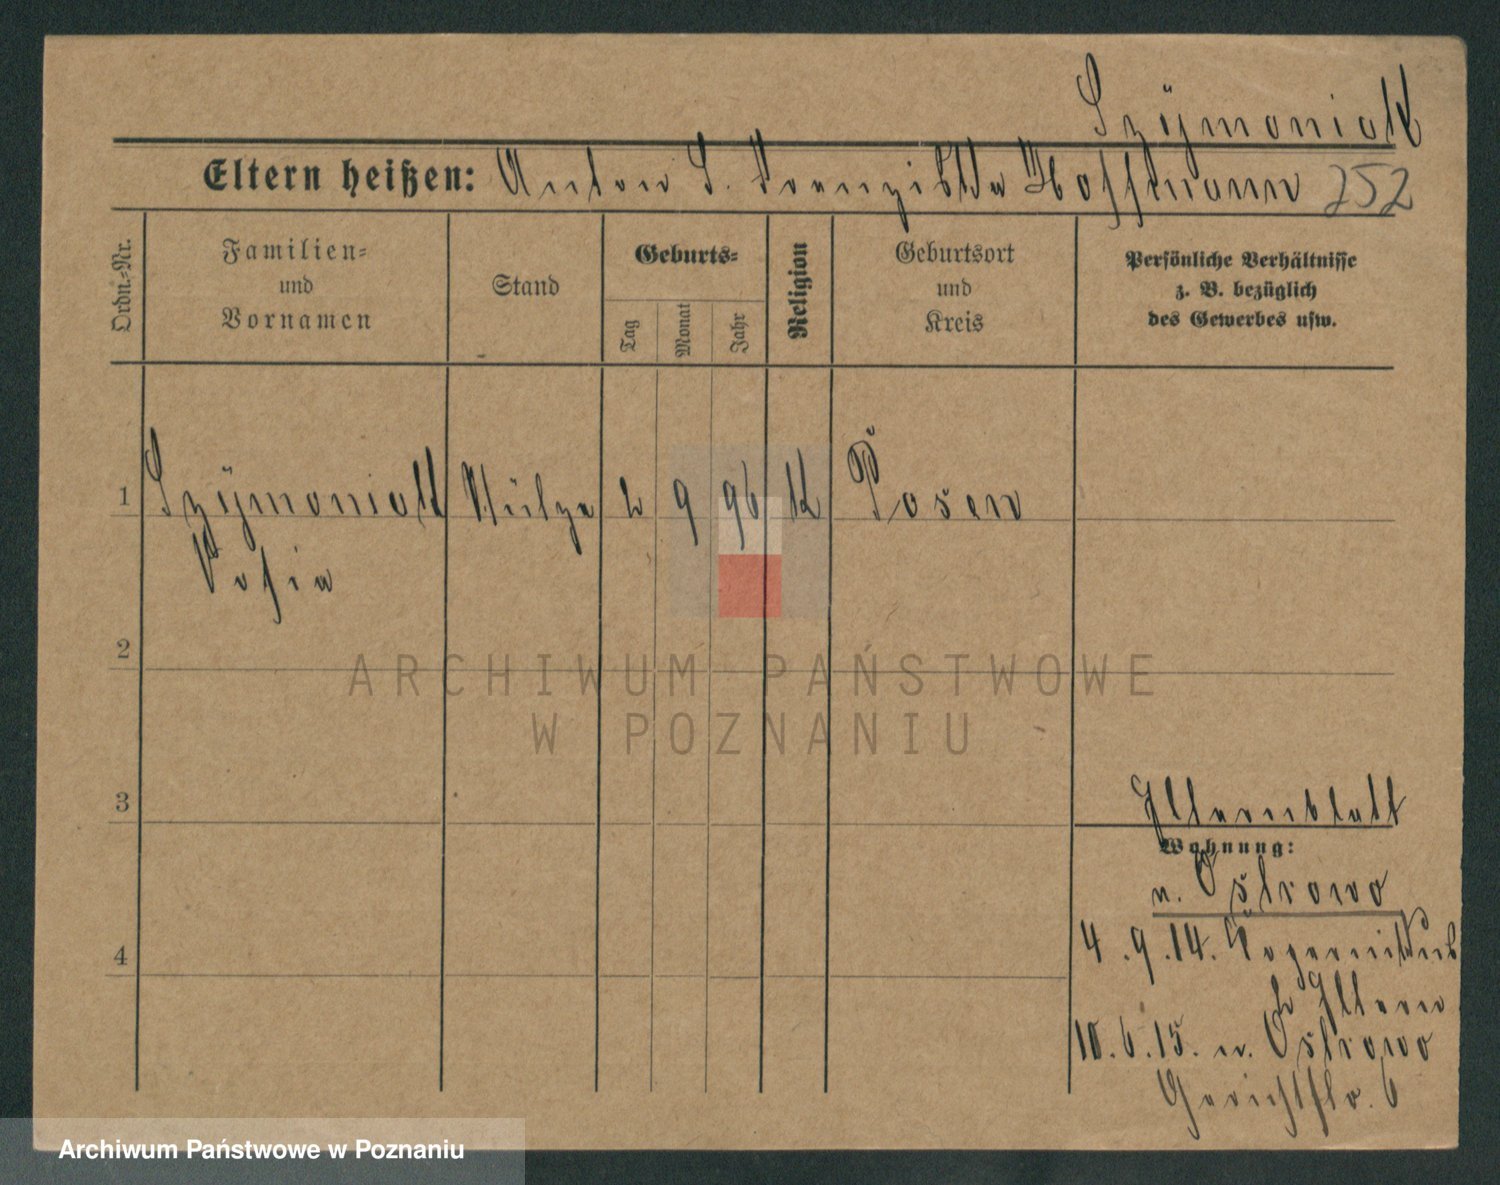 Szÿmoniak
Eltern heißen: Anton S. Franziska Hoffmann 252
Ordn.-Nr.
Familien-
und
Vornamen
Stand
Geburts-
Tag
Monat
Jahr
Religion
Geburtsort
und
Kreis
Persönliche Verhältnisse
z. B. bezüglich
des Gewerbes usw.
1 Szÿmoniak Stütze 2 9 96 K Posen
Sofia
2
ARCHIWUM PAŃSTWOWE
W POZNANIU
3
Elternblatt
Wohnung:
n. Ostrowo
4
4.9.14.
b Eltern
10.6.15. n. Ostrowo
Gerichtstr. 6
Archiwum Państwowe w Poznaniu